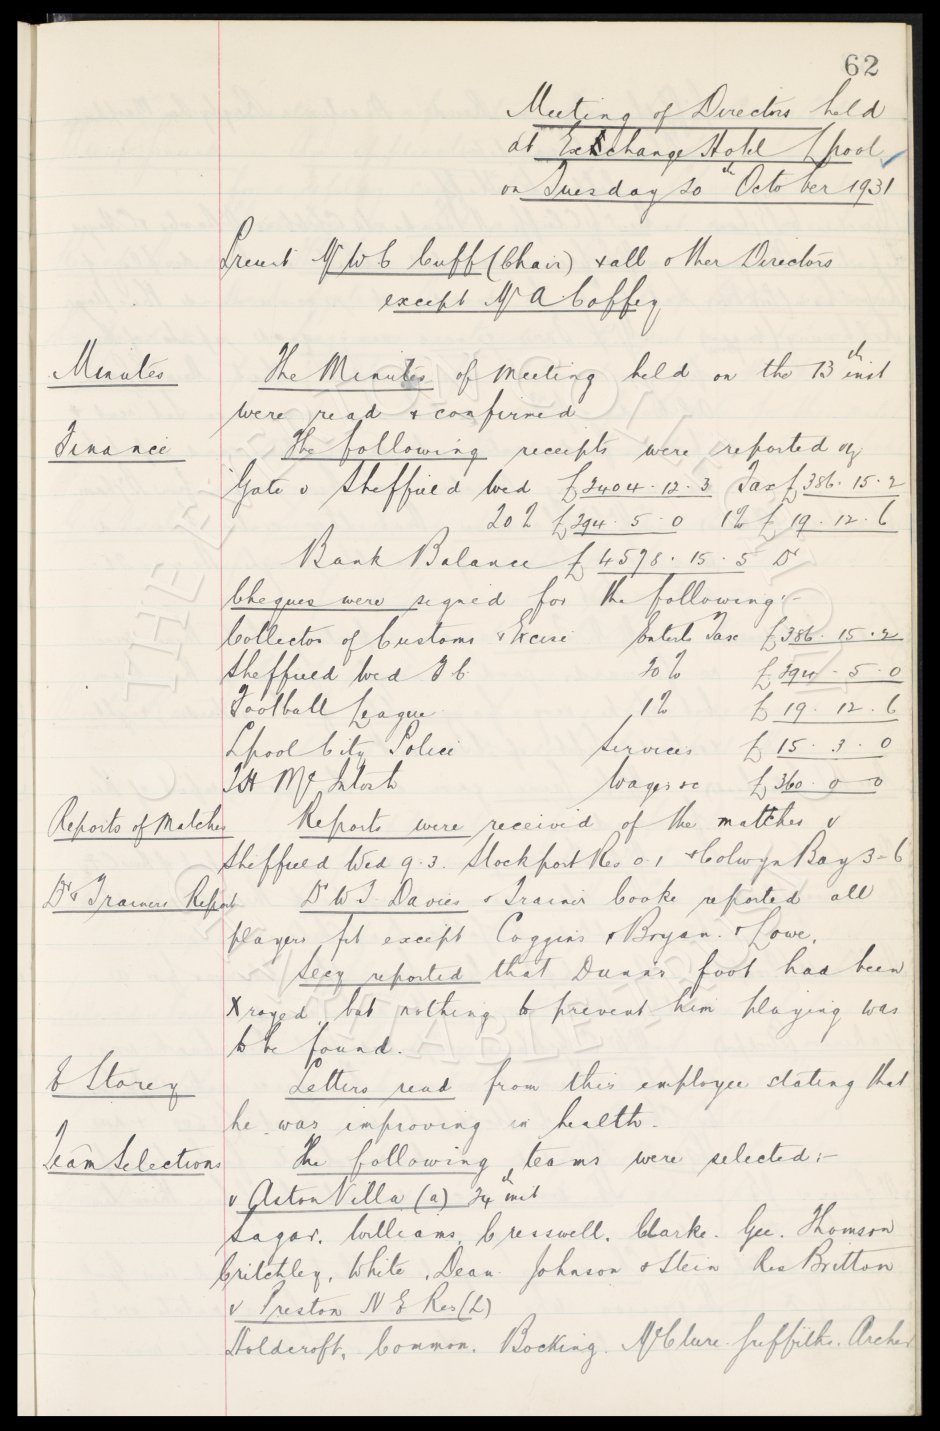 62
Meeting of Directors held
at Exchange Hotel Lpool
on Tuesday 20th October 1931
Present Mr W C Cuff (Chair) & all other Directors
except Mr A Coffey
Minutes The Minutes of meeting held on the 13th inst
were read & confirmed
Finance The following receipts were reported viz
Gate v Sheffield Wed £2404.12.3 Tax £386.15.2
20% £294.5.0 1% £19.12.6
Bank Balance £4578.15.5 Dr
Cheques were signed for the following:-
Collector of Customs & Excise Enterts Tax £386.15.2
Sheffield Wed F.C. 20% £294.5.0
Football League 1% £19.12.6
Lpool City Police Services £15.3.0
T H McIntosh Wages &c £360.0.0
Reports of Matches Reports were received of the matches v
Sheffield Wed 9.3. Stockport Res 0.1 & Colwyn Bay 3-6
Dr & Trainers Report Dr W J Davies & Trainer Cooke reported all
players fit except Coggins & Bryan. & Lowe.
Secy reported that Dunns foot had been
Xrayed, but nothing to prevent him playing was
to be found.
E Storey Letters read from this employee stating that
he was improving in health.
Team Selections The following teams were selected:-
v Aston Villa (a) 24th inst
Sagar. Williams. Cresswell. Clarke. Gee. Thomson
Critchley. White. Dean. Johnson & Stein Res Britton
v Preston N E Res (L)
Holdcroft. Common. Bocking. McClure. Griffiths. Archer